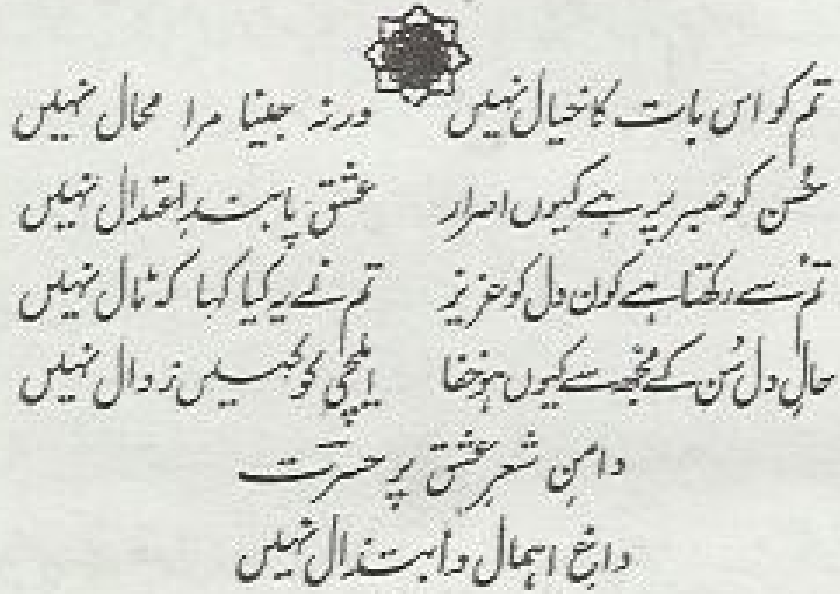 تم کو اس بات کا خیال نہیں ورنہ جینا مرا محال نہیں
حُسن کو صبر پر ہے کیوں اصرار عشق پابندِ اعتدال نہیں
تم سے رکھتا ہے کون دل کو عزیز تم نے یہ کیا کہا کہ مال نہیں
حالِ دل سُن کے مجھ سے کیوں ہو خفا ایلچی کو کہیں زوال نہیں
دامنِ شعرِ عشق پر حسرتؔ
داغِ اہمال و ابتذال نہیں